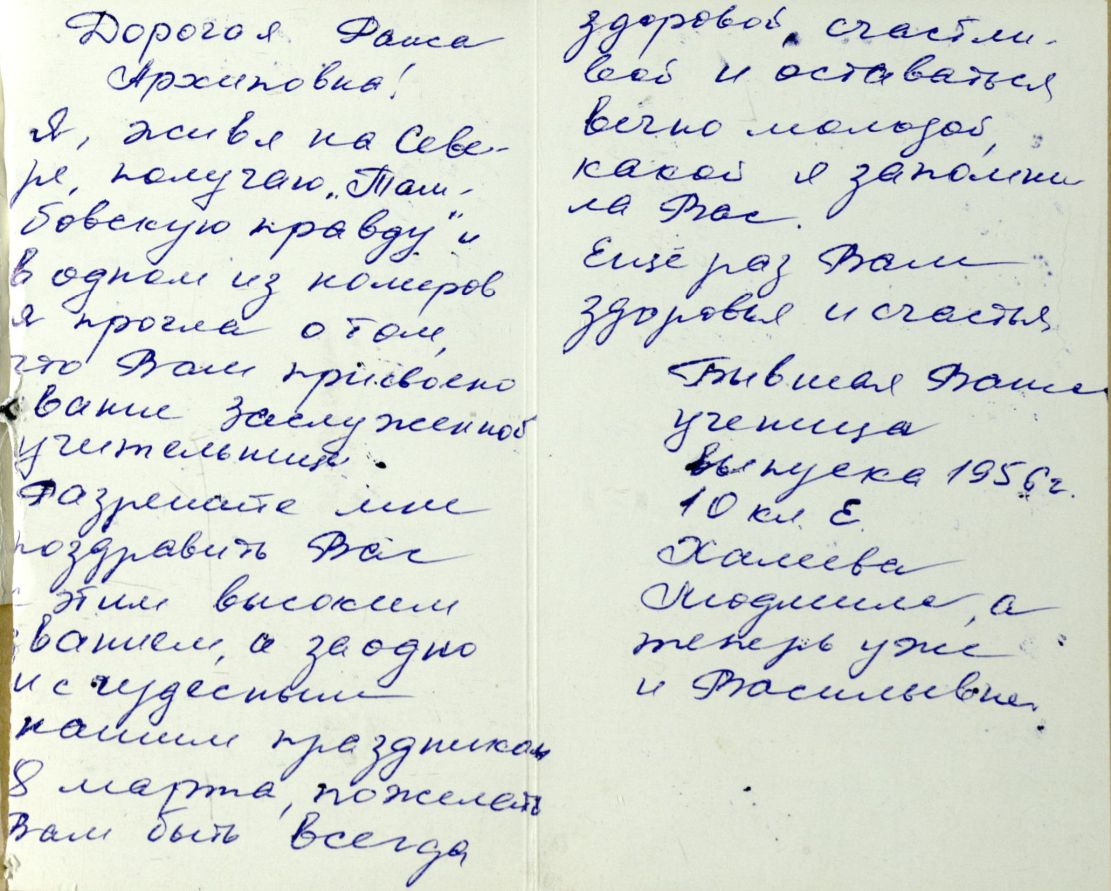 Дорогая Раиса
Архиповна!
Я, живя на Севе-
ре, получаю „Там-
бовскую правду" и
в одном из номеров
я прочла о том,
что Вам присвоено
звание заслуженной
учительницы.
Разрешите мне
поздравить Вас
с этим высоким
званием, а заодно
и с чудесным
нашим праздником
8 марта, пожелать
Вам быть всегда
здоровой, счастли-
вой и оставаться
вечно молодой,
какой я запомни
ла Вас.
Ещё раз Вам
здоровья и счастья
Бывшая Ваша
ученица
выпуска 1956 г.
10 кл. Е
Халеева
Людмила, а
теперь уже
и Васильевна.